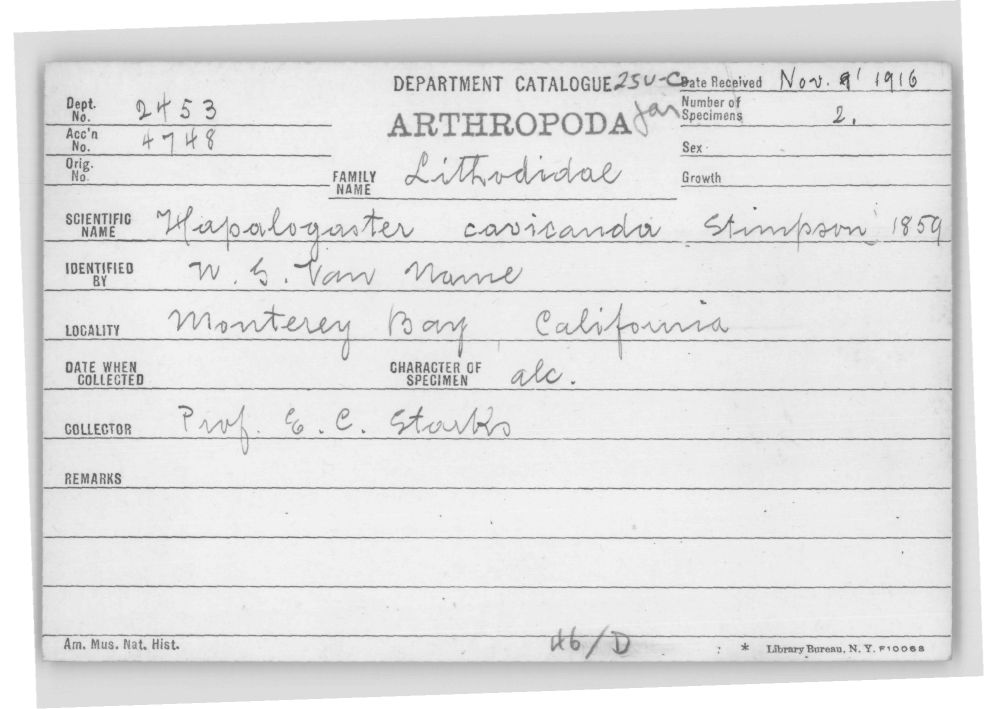 DEPARTMENT CATALOGUE 25U-C Date Received Nov. 9' 1916
Dept. No. 2453
ARTHROPODA Jar Number of Specimens 2.
Acc'n No. 4748
Sex
Orig. No.
FAMILY NAME Lithodidae Growth
SCIENTIFIC NAME Hapalogaster cavicauda Stimpson 1859
IDENTIFIED BY W. G. Van Name
LOCALITY Monterey Bay, California
DATE WHEN COLLECTED CHARACTER OF SPECIMEN alc.
COLLECTOR Prof. E. C. Starks
REMARKS
Am. Mus. Nat. Hist. 46/D * Library Bureau, N. Y. F10068